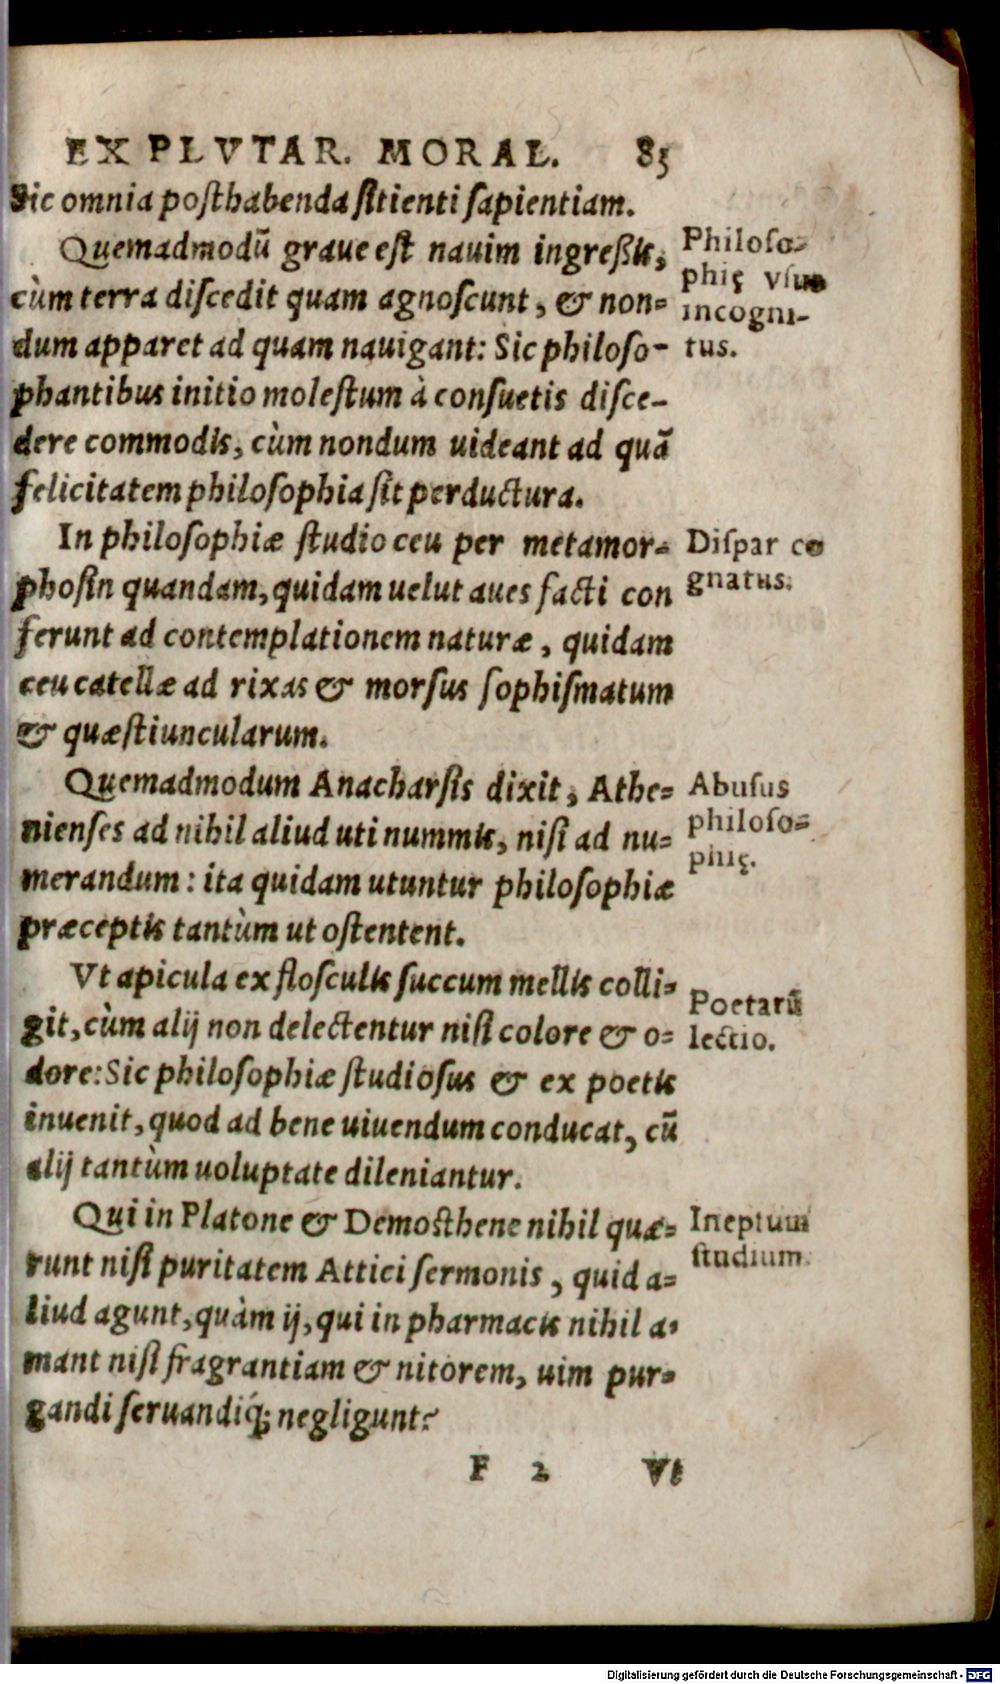 EX PLVTAR. MORAL. 85
Sic omnia posthabenda sitienti sapientiam.
Quemadmodũ graue est nauim ingreßis,
cùm terra discedit quam agnoscunt, & non=
dum apparet ad quam nauigant: Sic philoso-
phantibus initio molestum à consuetis disce-
dere commodis, cùm nondum uideant ad quã
felicitatem philosophia sit perductura.
Philoso=
phię vsus
incogni-
tus.
In philosophiæ studio ceu per metamor=
phosin quandam, quidam uelut aues facti con
ferunt ad contemplationem naturæ, quidam
ceu catellæ ad rixas & morsus sophismatum
& quæstiuncularum.
Dispar co
gnatus.
Quemadmodum Anacharsis dixit, Athe=
nienses ad nihil aliud uti nummis, nisi ad nu=
merandum: ita quidam utuntur philosophiæ
præceptis tantùm ut ostentent.
Abusus
philoso=
phię.
Vt apicula ex flosculis succum mellis colli=
git, cùm alij non delectentur nisi colore & o=
dore: Sic philosophiæ studiosus & ex poetis
inuenit, quod ad bene uiuendum conducat, cũ
alij tantùm uoluptate dileniantur.
Poetarũ
lectio.
Qui in Platone & Demosthene nihil quæ=
runt nisi puritatem Attici sermonis, quid a=
liud agunt, quàm ij, qui in pharmacis nihil a=
mant nisi fragrantiam & nitorem, uim pur=
gandi seruandiq́; negligunt?
Ineptum
studium.
F 2 Vt
Digitalisierung gefördert durch die Deutsche Forschungsgemeinschaft - DFG